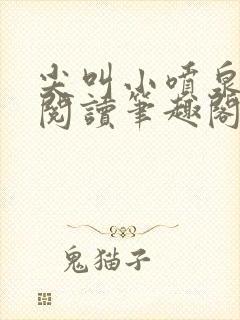 尖叫小噴泉
閱讀筆趣閣
鬼猫子